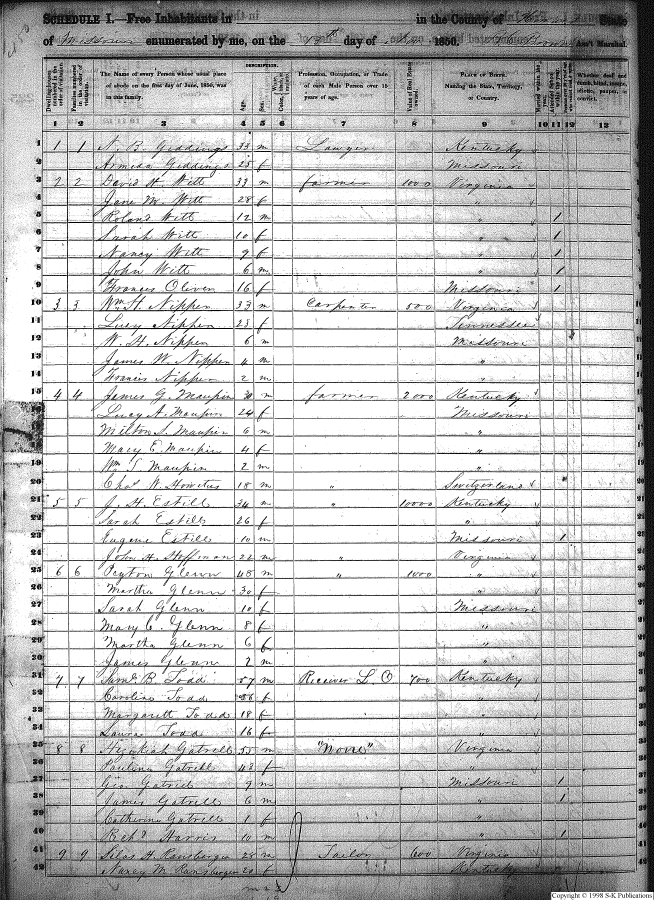 SCHEDULE I.—Free Inhabitants in in the County of State
of Missouri enumerated by me, on the day of 1850. Ass't Marshal.
Dwelling-houses numbered in the order of visitation. Families numbered in the order of visitation. The Name of every Person whose usual place of abode on the first day of June, 1850, was in this family. DESCRIPTION. Age. Sex. Profession, Occupation, or Trade of each Male Person over 15 years of age. Value of Real Estate owned. PLACE OF BIRTH. Naming the State, Territory, or Country. Whether deaf and dumb, blind, insane, idiotic, pauper, or convict.
1 2 3 4 5 6 7 8 9 10 11 12 13
1 1 1 N. B. Giddings 33 m Lawyer Kentucky
2 Armida Giddings 25 f Missouri
3 2 2 David H. Witt 33 m farmer 1000 Virginia
4 Jane M. Witt 28 f
5 Roland Witt 12 m " 1
6 Sarah Witt 10 f " 1
7 Nancy Witt 9 f " 1
8 John Witt 6 m " 1
9 Frances Oliven 16 f Missouri 1
10 3 3 Wm H. Nippen 33 m Carpenter 500 Virginia
11 Lucy Nippen 23 f Tennessee
12 W. H. Nippen 6 m Missouri
13 James W. Nippen 4 m "
14 Francis Nippen 2 m "
15 4 4 James G. Maupin 30 m farmer 2000 Kentucky
16 Lucy A. Maupin 24 f Missouri
17 Milton S. Maupin 6 m "
18 Mary E. Maupin 4 f "
19 Wm T. Maupin 2 m "
20 Chas W. 18 m " Switzerland
21 5 5 J. H. Estill 34 m " 10000 Kentucky
22 Sarah Estill 26 f "
23 Eugene Estill 10 m Missouri 1
24 John H. Hoffman 22 m " Virginia
25 6 6 Peyton Glenn 48 m " 1000 "
26 Martha Glenn 30 f "
27 Sarah Glenn 10 f Missouri
28 Mary C. Glenn 8 f "
29 Martha Glenn 6 f "
30 James Glenn 2 m "
31 7 7 Saml. B. Todd 57 m Receiver L. O. 700 Kentucky
32 Caroline Todd 36 f "
33 Margarett Todd 18 f "
34 Laura Todd 16 f "
35 8 8 Hezekiah Gatrell 55 m "None" Virginia
36 Paulina Gatrell 43 f "
37 Geo Gatrell 9 m Missouri 1
38 James Gatrell 6 m " 1
39 Catherine Gatrell 1 f "
40 Robt Harris 10 m " 1
41 9 9 Silas H. Ransberger 28 m Tailor 600 Virginia
42 Nancy M. Ransberger 20 f Kentucky
Copyright © 1998 S-K Publications